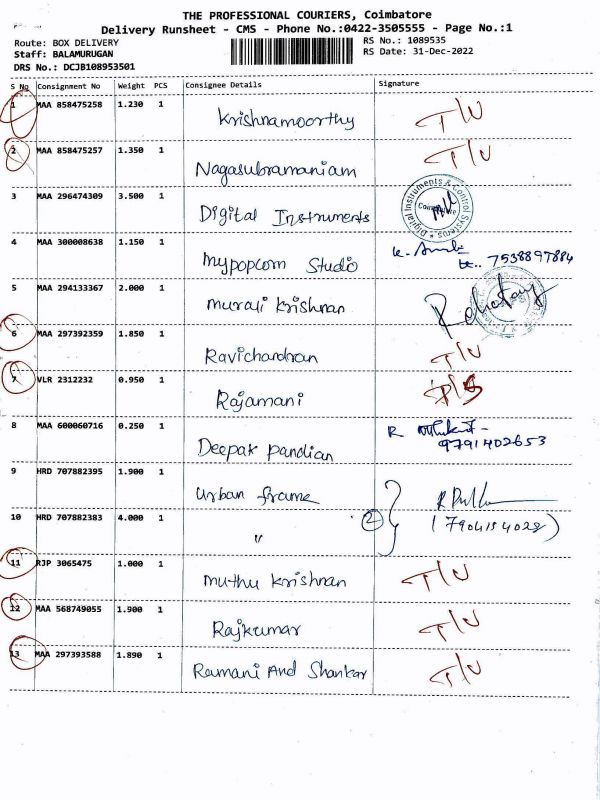 THE PROFESSIONAL COURIERS, Coimbatore
Delivery Runsheet - CMS - Phone No.:0422-3505555 - Page No.:1
Route: BOX DELIVERY RS No.: 1089535
Staff: BALAMURUGAN RS Date: 31-Dec-2022
DRS No.: DCJB108953501
S No Consignment No Weight PCS Consignee Details Signature
1 MAA 858475258 1.230 1 Krishnamoorthy T/U
2 MAA 858475257 1.350 1 Nagasubramaniam T/U
3 MAA 296474309 3.500 1 Digital Instruments Digital Instruments & Control Systems Coimbatore
4 MAA 300008638 1.150 1 mypopcorn Studio 7538897884
5 MAA 294133367 2.000 1 murali Krishnan
6 MAA 297392359 1.850 1 Ravichandran T/U
7 VLR 2312232 0.950 1 Rajamani
8 MAA 600060716 0.250 1 Deepak Pandian R 9791402653
9 HRD 707882395 1.900 1 Urban frame
10 HRD 707882383 4.000 1 " 2 (7904154028)
11 RJP 3065475 1.000 1 Muthu Krishnan T/U
12 MAA 568749055 1.900 1 Rajkumar T/U
13 MAA 297393588 1.890 1 Ramani And Shankar T/U